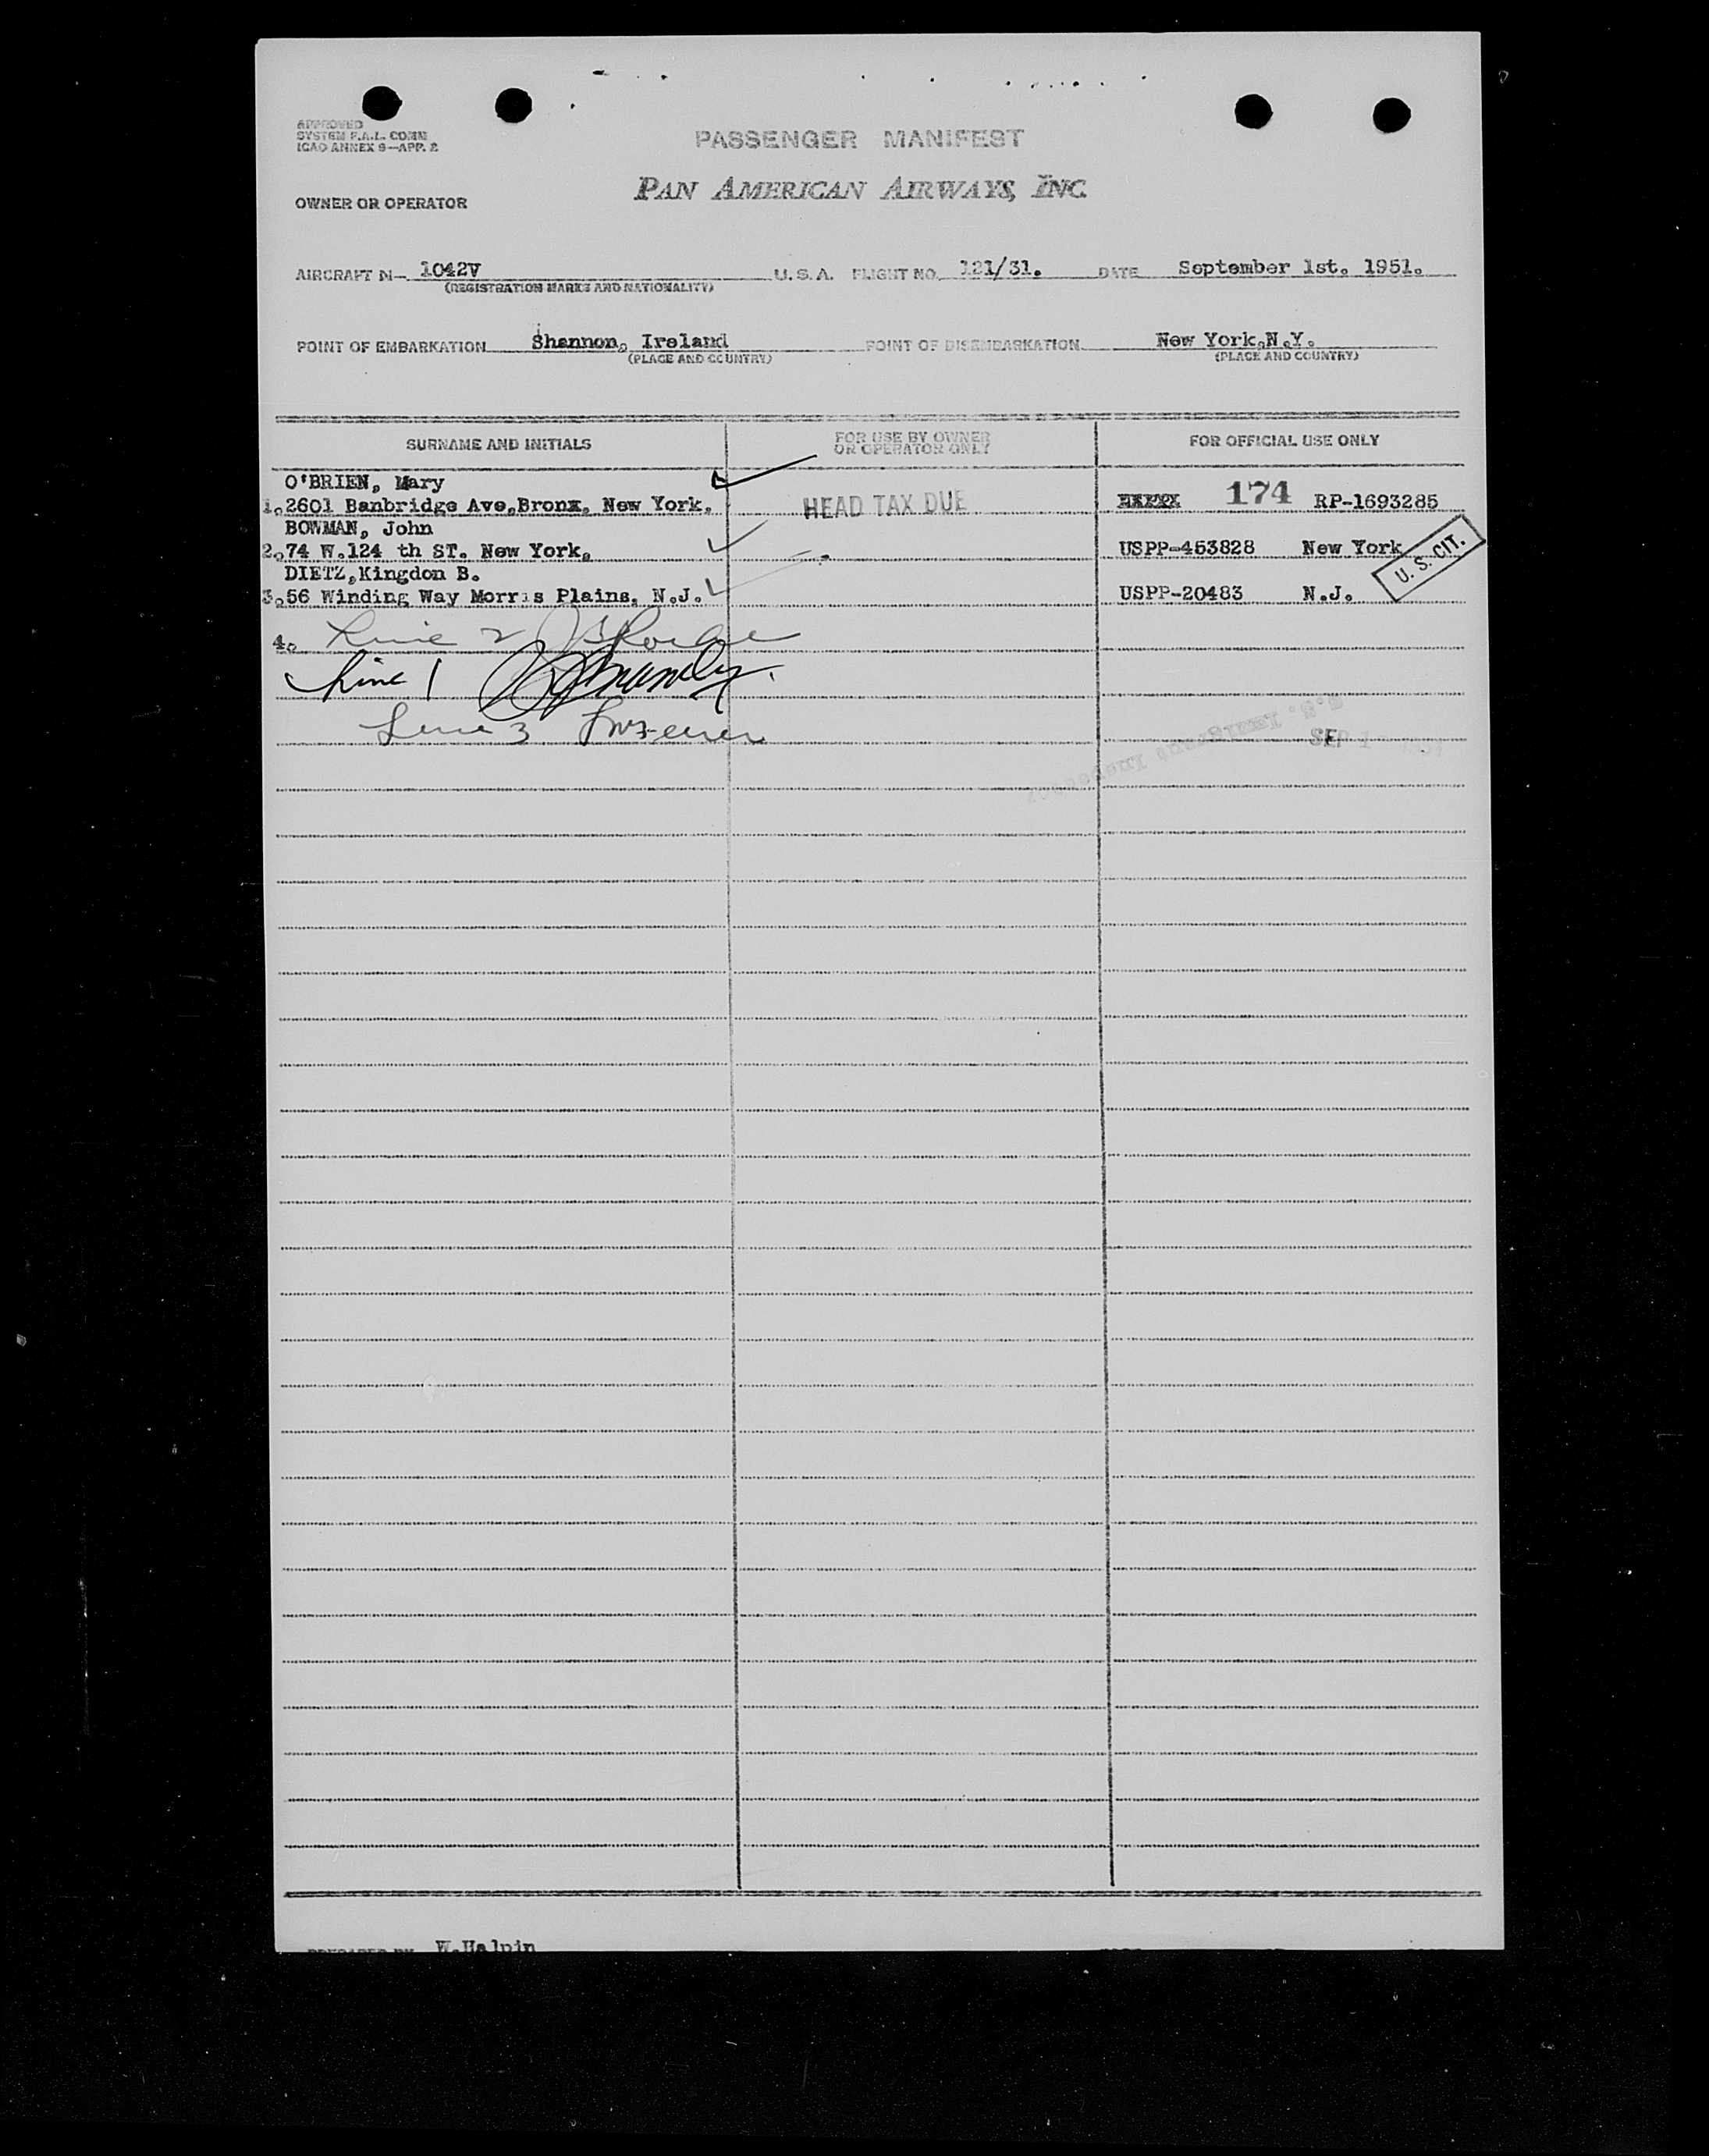 APPROVED
SYSTEM F.A.L. COMM
ICAO ANNEX 9—APP. 2
PASSENGER MANIFEST
PAN AMERICAN AIRWAYS, INC.
OWNER OR OPERATOR
AIRCRAFT N— 1042V U.S.A. FLIGHT NO. 121/31. DATE September 1st. 1951.
(REGISTRATION MARKS AND NATIONALITY)
POINT OF EMBARKATION Shannon, Ireland POINT OF DISEMBARKATION New York,N.Y.
(PLACE AND COUNTRY) (PLACE AND COUNTRY)
SURNAME AND INITIALS FOR USE BY OWNER OR OPERATOR ONLY FOR OFFICIAL USE ONLY
O'BRIEN, Mary
1.2601 Banbridge Ave,Bronx, New York. HEAD TAX DUE 174 RP-1693285
BOWMAN, John
2.74 W.124 th ST. New York. USPP-453828 New York
U. S. CIT.
DIETZ,Kingdon B.
3.56 Winding Way Morris Plains, N.J. USPP-20483 N.J.
4. Line 2
Line 1
Line 3
U.S. Immigrant Inspector
SEP 1
PREPARED BY W.Halpin